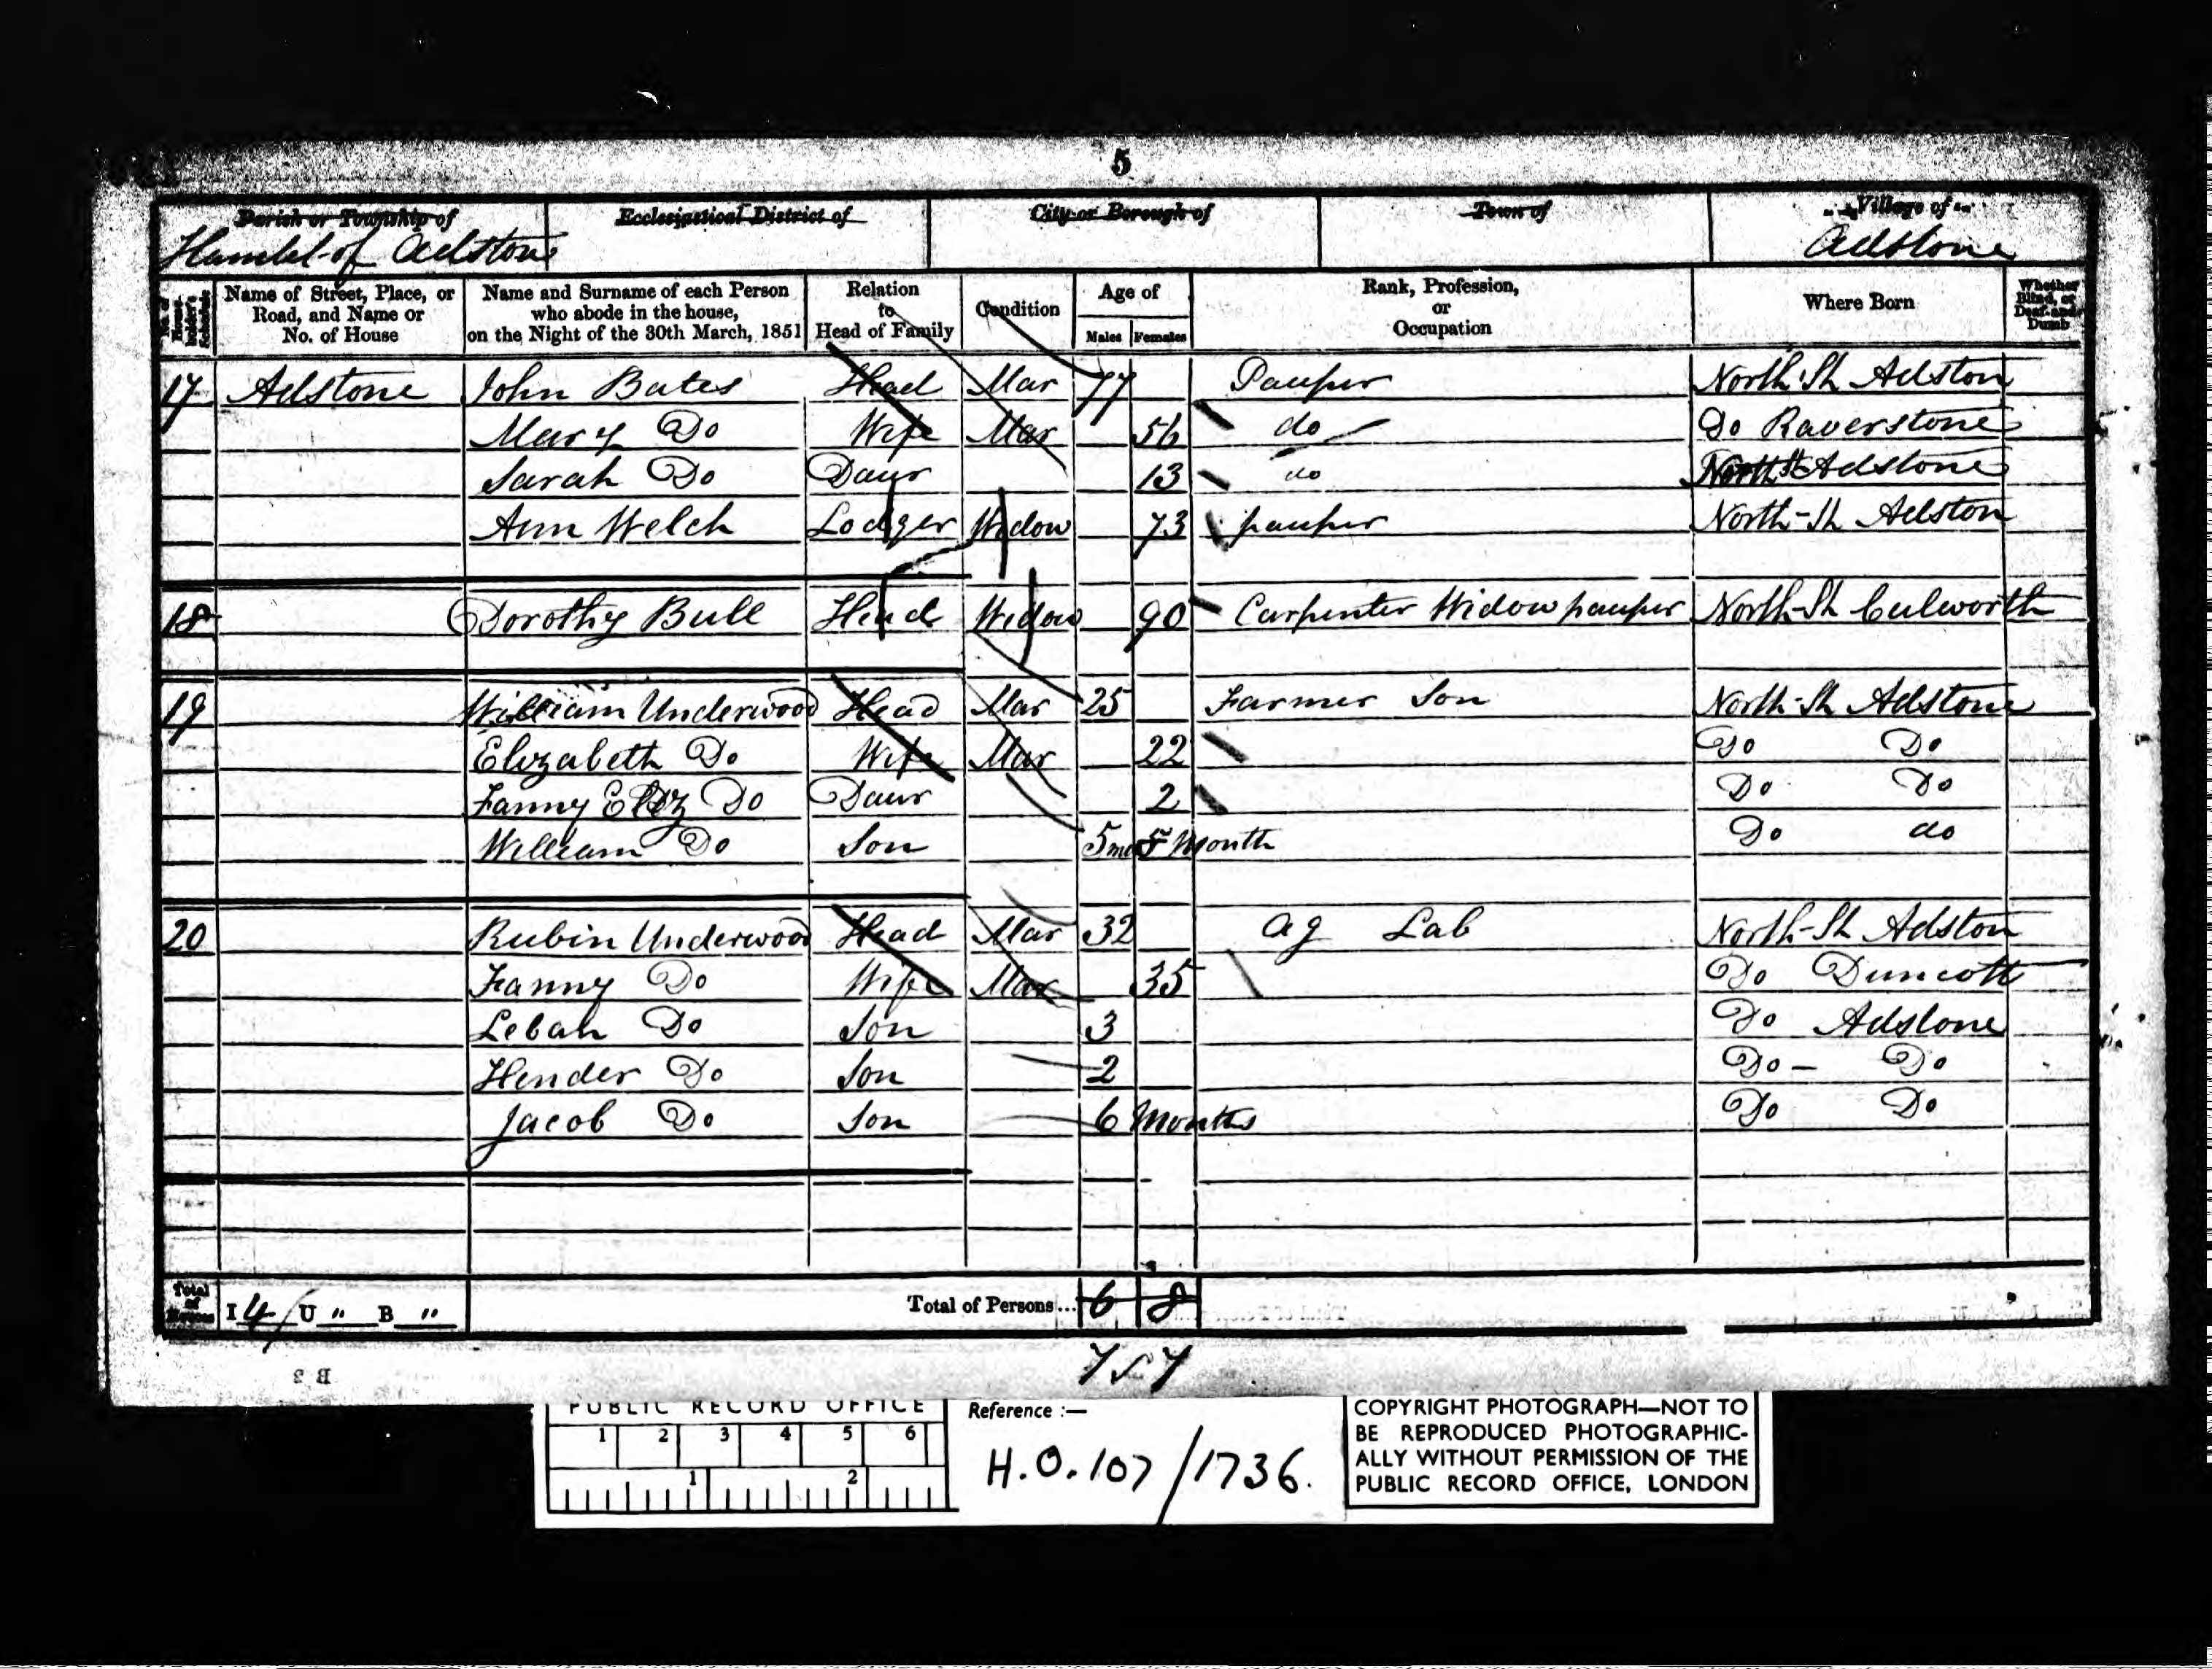 5
Parish or Township of Ecclesiastical District of City or Borough of Town of Village of
Hamlet of Adstone Adstone
No. of House-holder's Schedule Name of Street, Place, or Road, and Name or No. of House Name and Surname of each Person who abode in the house, on the Night of the 30th March, 1851 Relation to Head of Family Condition Age of Males Females Rank, Profession, or Occupation Where Born Whether Blind, or Deaf-and-Dumb
17 Adstone John Bates Head Mar 77 Pauper North-Sh Adston
Mary Do Wife Mar 56 do Do Raverstone
Sarah Do Daur 13 do North Sh Adstone
Ann Welch Lodger Widow 73 pauper North-Sh Adston
18 Dorothy Bull Head Widow 90 Carpenter Widow pauper North-Sh Culworth
19 William Underwood Head Mar 25 Farmer Son North-Sh Adstone
Elizabeth Do Wife Mar 22 Do Do
Fanny Eliz Do Daur 2 Do Do
William Do Son 5 mo 5 Month Do do
20 Rubin Underwood Head Mar 32 ag Lab North-Sh Adston
Fanny Do Wife Mar 35 Do Duncott
Leban Do Son 3 Do Adstone
Hender Do Son 2 Do - Do
Jacob Do Son 6 Months Do Do
Total of Houses I 4 U " B " Total of Persons... 6 8
7 7
B 2
PUBLIC RECORD OFFICE
1 2 3 4 5 6
1 2
Reference :-
H.O. 107/1736.
COPYRIGHT PHOTOGRAPH—NOT TO
BE REPRODUCED PHOTOGRAPHIC-
ALLY WITHOUT PERMISSION OF THE
PUBLIC RECORD OFFICE, LONDON